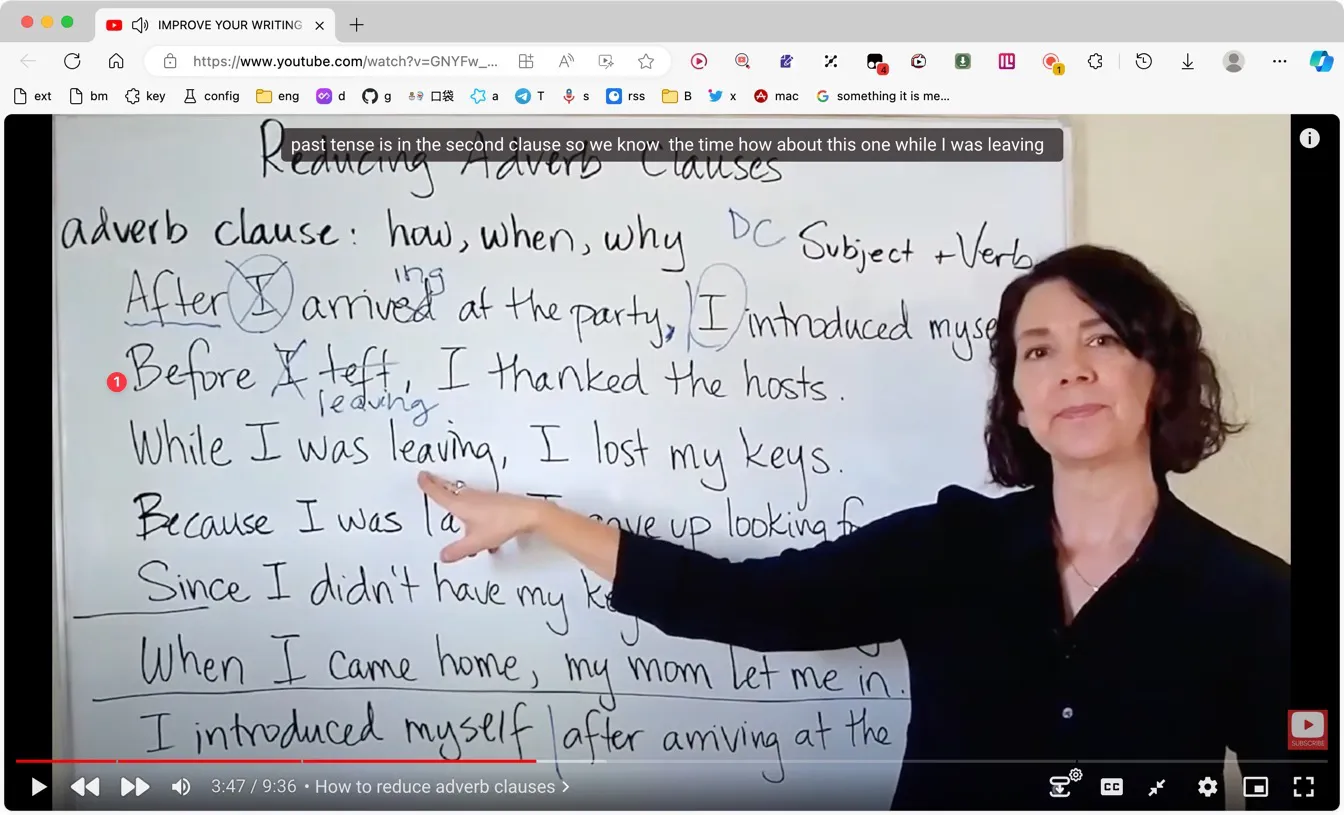 IMPROVE YOUR WRITING
https://www.youtube.com/watch?v=GNYFw_...
4
1
ext bm key config eng d g 口袋 a T s rss B x mac something it is me...
past tense is in the second clause so we know the time how about this one while I was leaving
Reducing Adverb Clauses
adverb clause: how, when, why DC Subject + Verb
ing
After I arrived at the party, I introduced myse
1
Before I left, I thanked the hosts.
leaving
While I was leaving, I lost my keys.
Because I was la up looking
Since I didn't have my
When I came home, my mom let me in.
I introduced myself | after arriving at the
SUBSCRIBE
3:47 / 9:36 • How to reduce adverb clauses >
CC